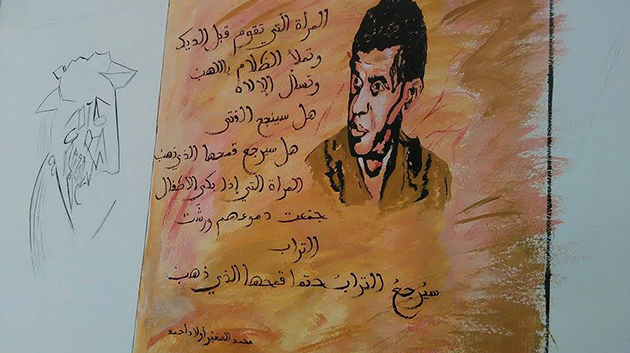 المرأة التي تقوم قبل الديك
وتملأ الظلام باللهب
وتسأل الإلاه
هل سينجع الفتى
هل سيرجع قمحها الذي ذهب
المرأة التي إذا بكى الأطفال
جمعت دموعهم ورشت
التراب
سيُرجعُ الترابُ حتما قمحها الذي ذهب
محمد الصغير أولاد أحمد